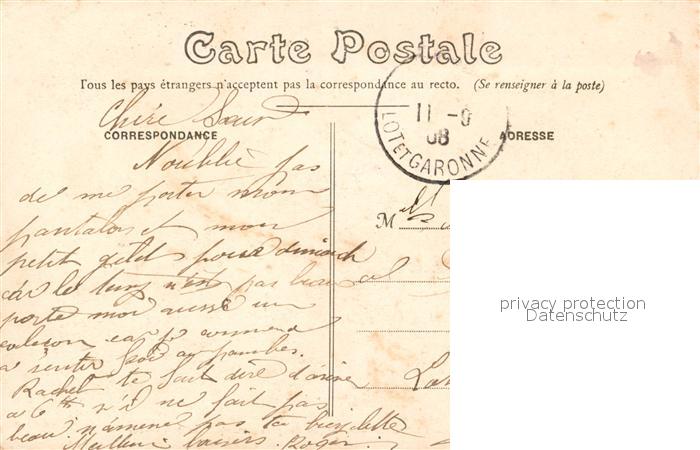 Carte Postale
Tous les pays étrangers n'acceptent pas la correspondance au recto. (Se renseigner à la poste)
CORRESPONDANCE
ADRESSE
11 -9
08
LOT ET GARONNE
Chère Sœur
N'oublie pas
de me porter mon
pantalon et mon
petit gilet pour dimanch
car le temp n'est pas beau
porte moi aussi un
caleçon car je commence
a sentir froid au jambes.
Rachel te fait dire
a 6h il ne fait pas
beau n'amène pas ta bicyclette
Meilleurs baisers. Roger.
Mell
privacy protection
Datenschutz